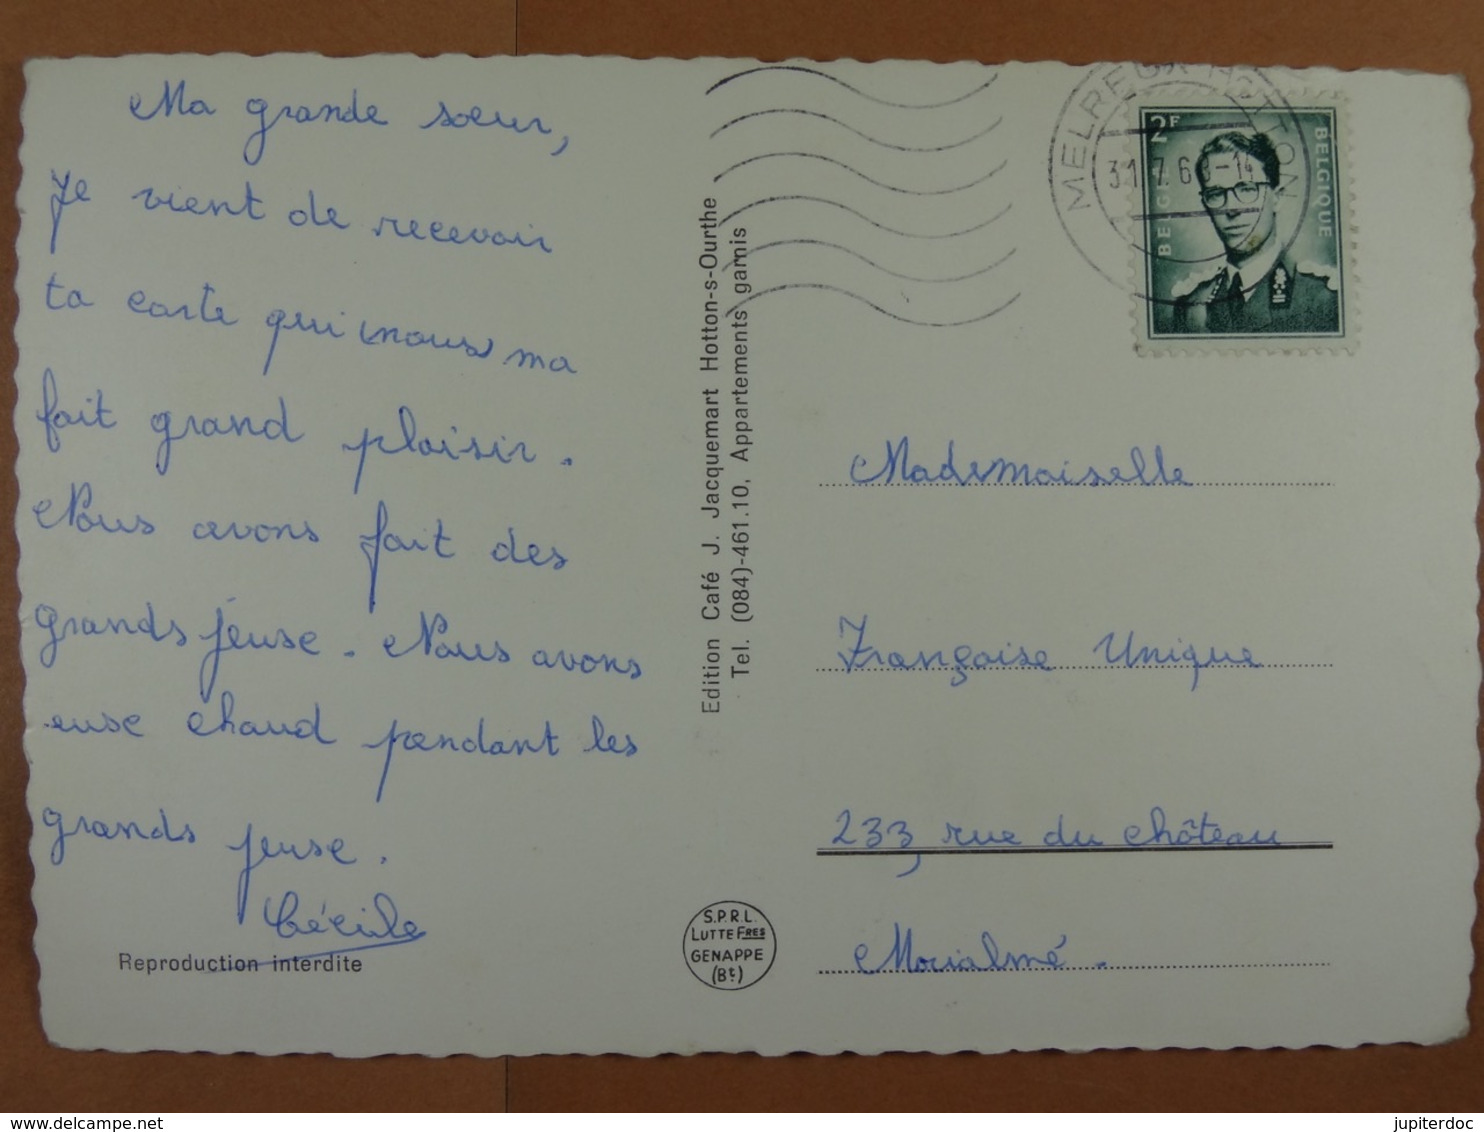 Ma grande sœur,
Je vient de recevoir
ta carte qui (nous) ma
fait grand plaisir.
Nous avons fait des
grands jeuse. Nous avons
euse chaud pendant les
grands jeuse.
Cécile
Reproduction interdite
Edition Café J. Jacquemart Hotton-s-Ourthe
Tel. (084)-461.10, Appartements garnis
S.P.R.L.
LUTTE FRES
GENAPPE
(Bt.)
2F
BELGIQUE
Mademoiselle
Françoise Unique
233, rue du château
Morialmé.
delcampe.net
jupiterdoc